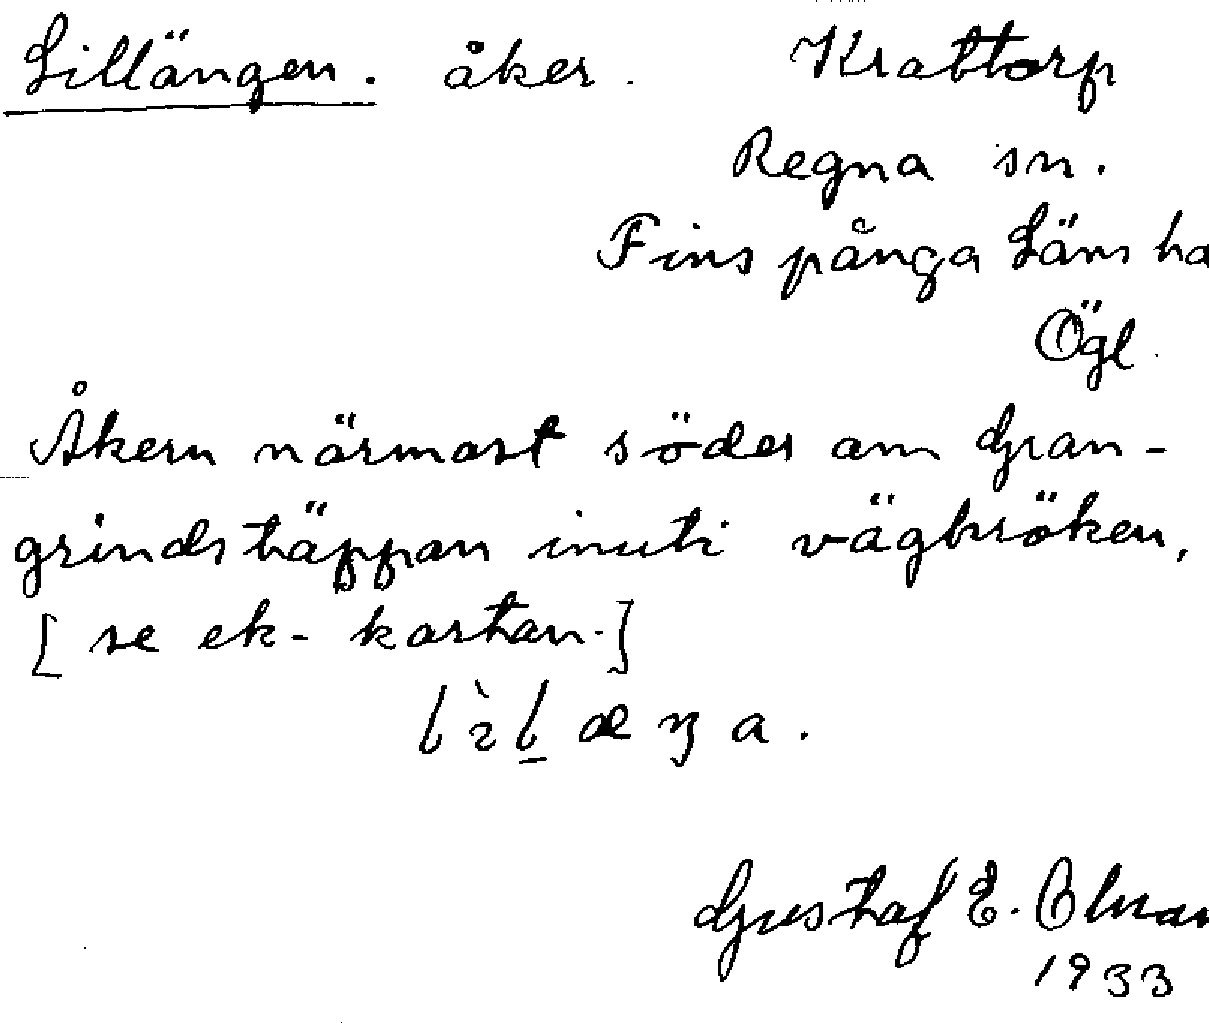 Lillängen. åker. Krabbtorp
Regna sn.
Finspånga Läns hd
Ögl.
Åkern närmast söder om Gran-
grindstäppan inuti vägkröken,
[se ek-kartan.]
Gustaf E.
1933